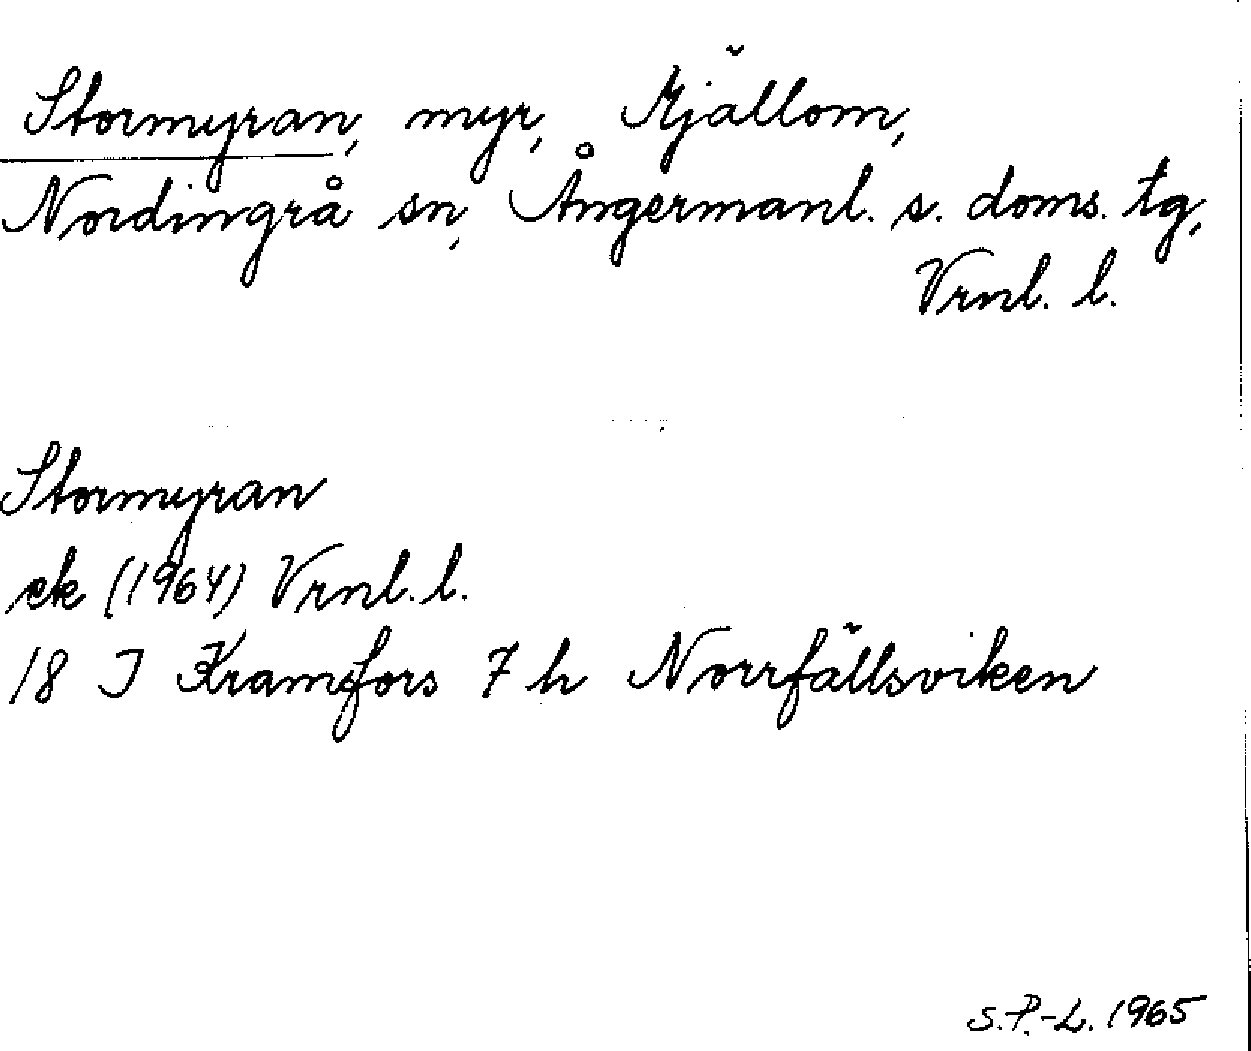 Stormyran, myr, Mjällom,
Nordingrå sn, Ångermanl. s. doms. tg,
Vrnl. l.
Stormyran
ek (1964) Vrnl. l.
18 J Kramfors 7 h Norrfällsviken
S.P.-L. 1965